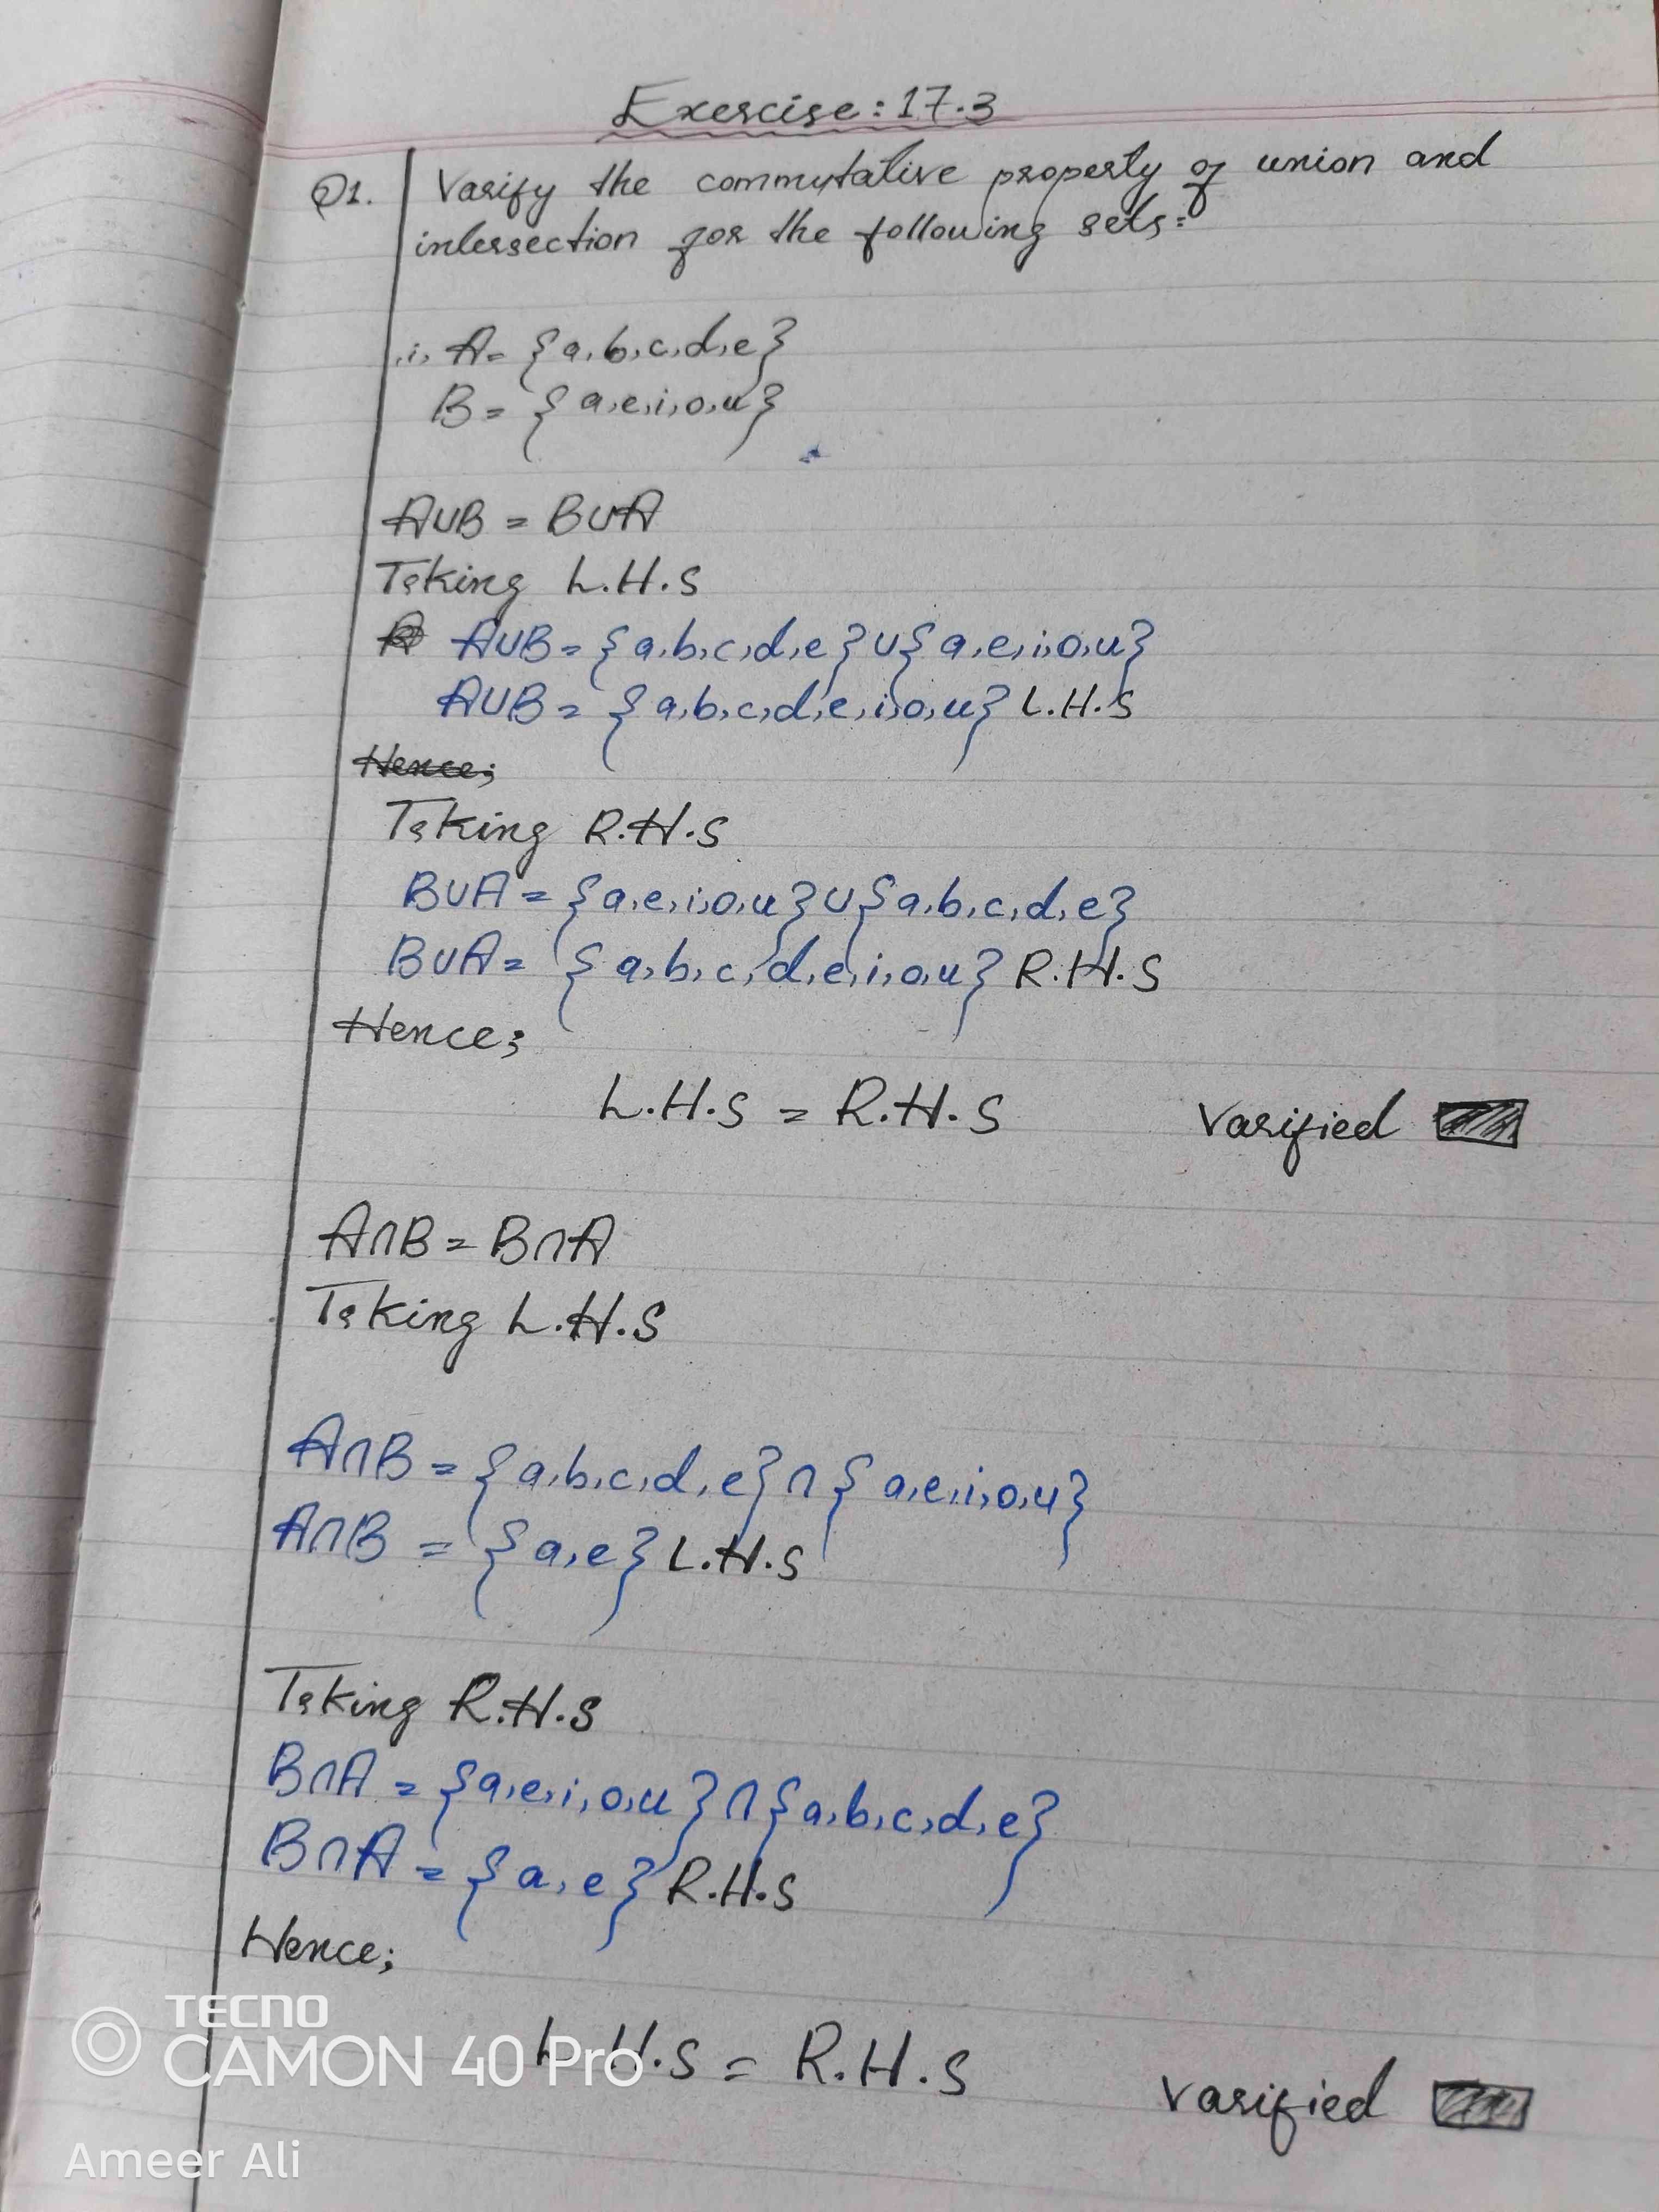 Exercise: 17.3
Q1. Varify the commutative property of union and
intersection for the following sets:
i, A= {a,b,c,d,e}
B= {a,e,i,o,u}
A∪B = B∪A
Taking L.H.S
A∪B= {a,b,c,d,e}∪{a,e,i,o,u}
A∪B= {a,b,c,d,e,i,o,u} L.H.S
Hence;
Taking R.H.S
B∪A= {a,e,i,o,u}∪{a,b,c,d,e}
B∪A= {a,b,c,d,e,i,o,u} R.H.S
Hence;
L.H.S = R.H.S Varified
A∩B = B∩A
Taking L.H.S
A∩B = {a,b,c,d,e}∩{a,e,i,o,u}
A∩B = {a,e} L.H.S
Taking R.H.S
B∩A = {a,e,i,o,u}∩{a,b,c,d,e}
B∩A = {a,e} R.H.S
Hence;
L.H.S = R.H.S Varified
TECNO
CAMON 40 Pro
Ameer Ali